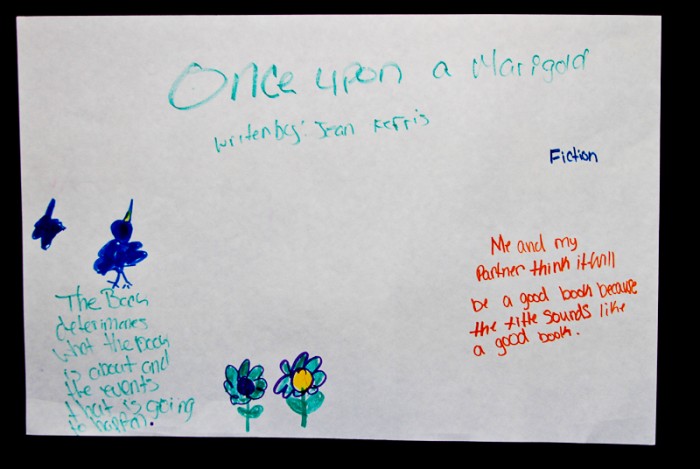 Once upon a Marigold
writen by: Jean Ferris
Fiction
Me and my
Partner think it will
be a good book because
the title sounds like
a good book.
The Book
deterimenes
what the book
is about and
the events
that is going
to happen.